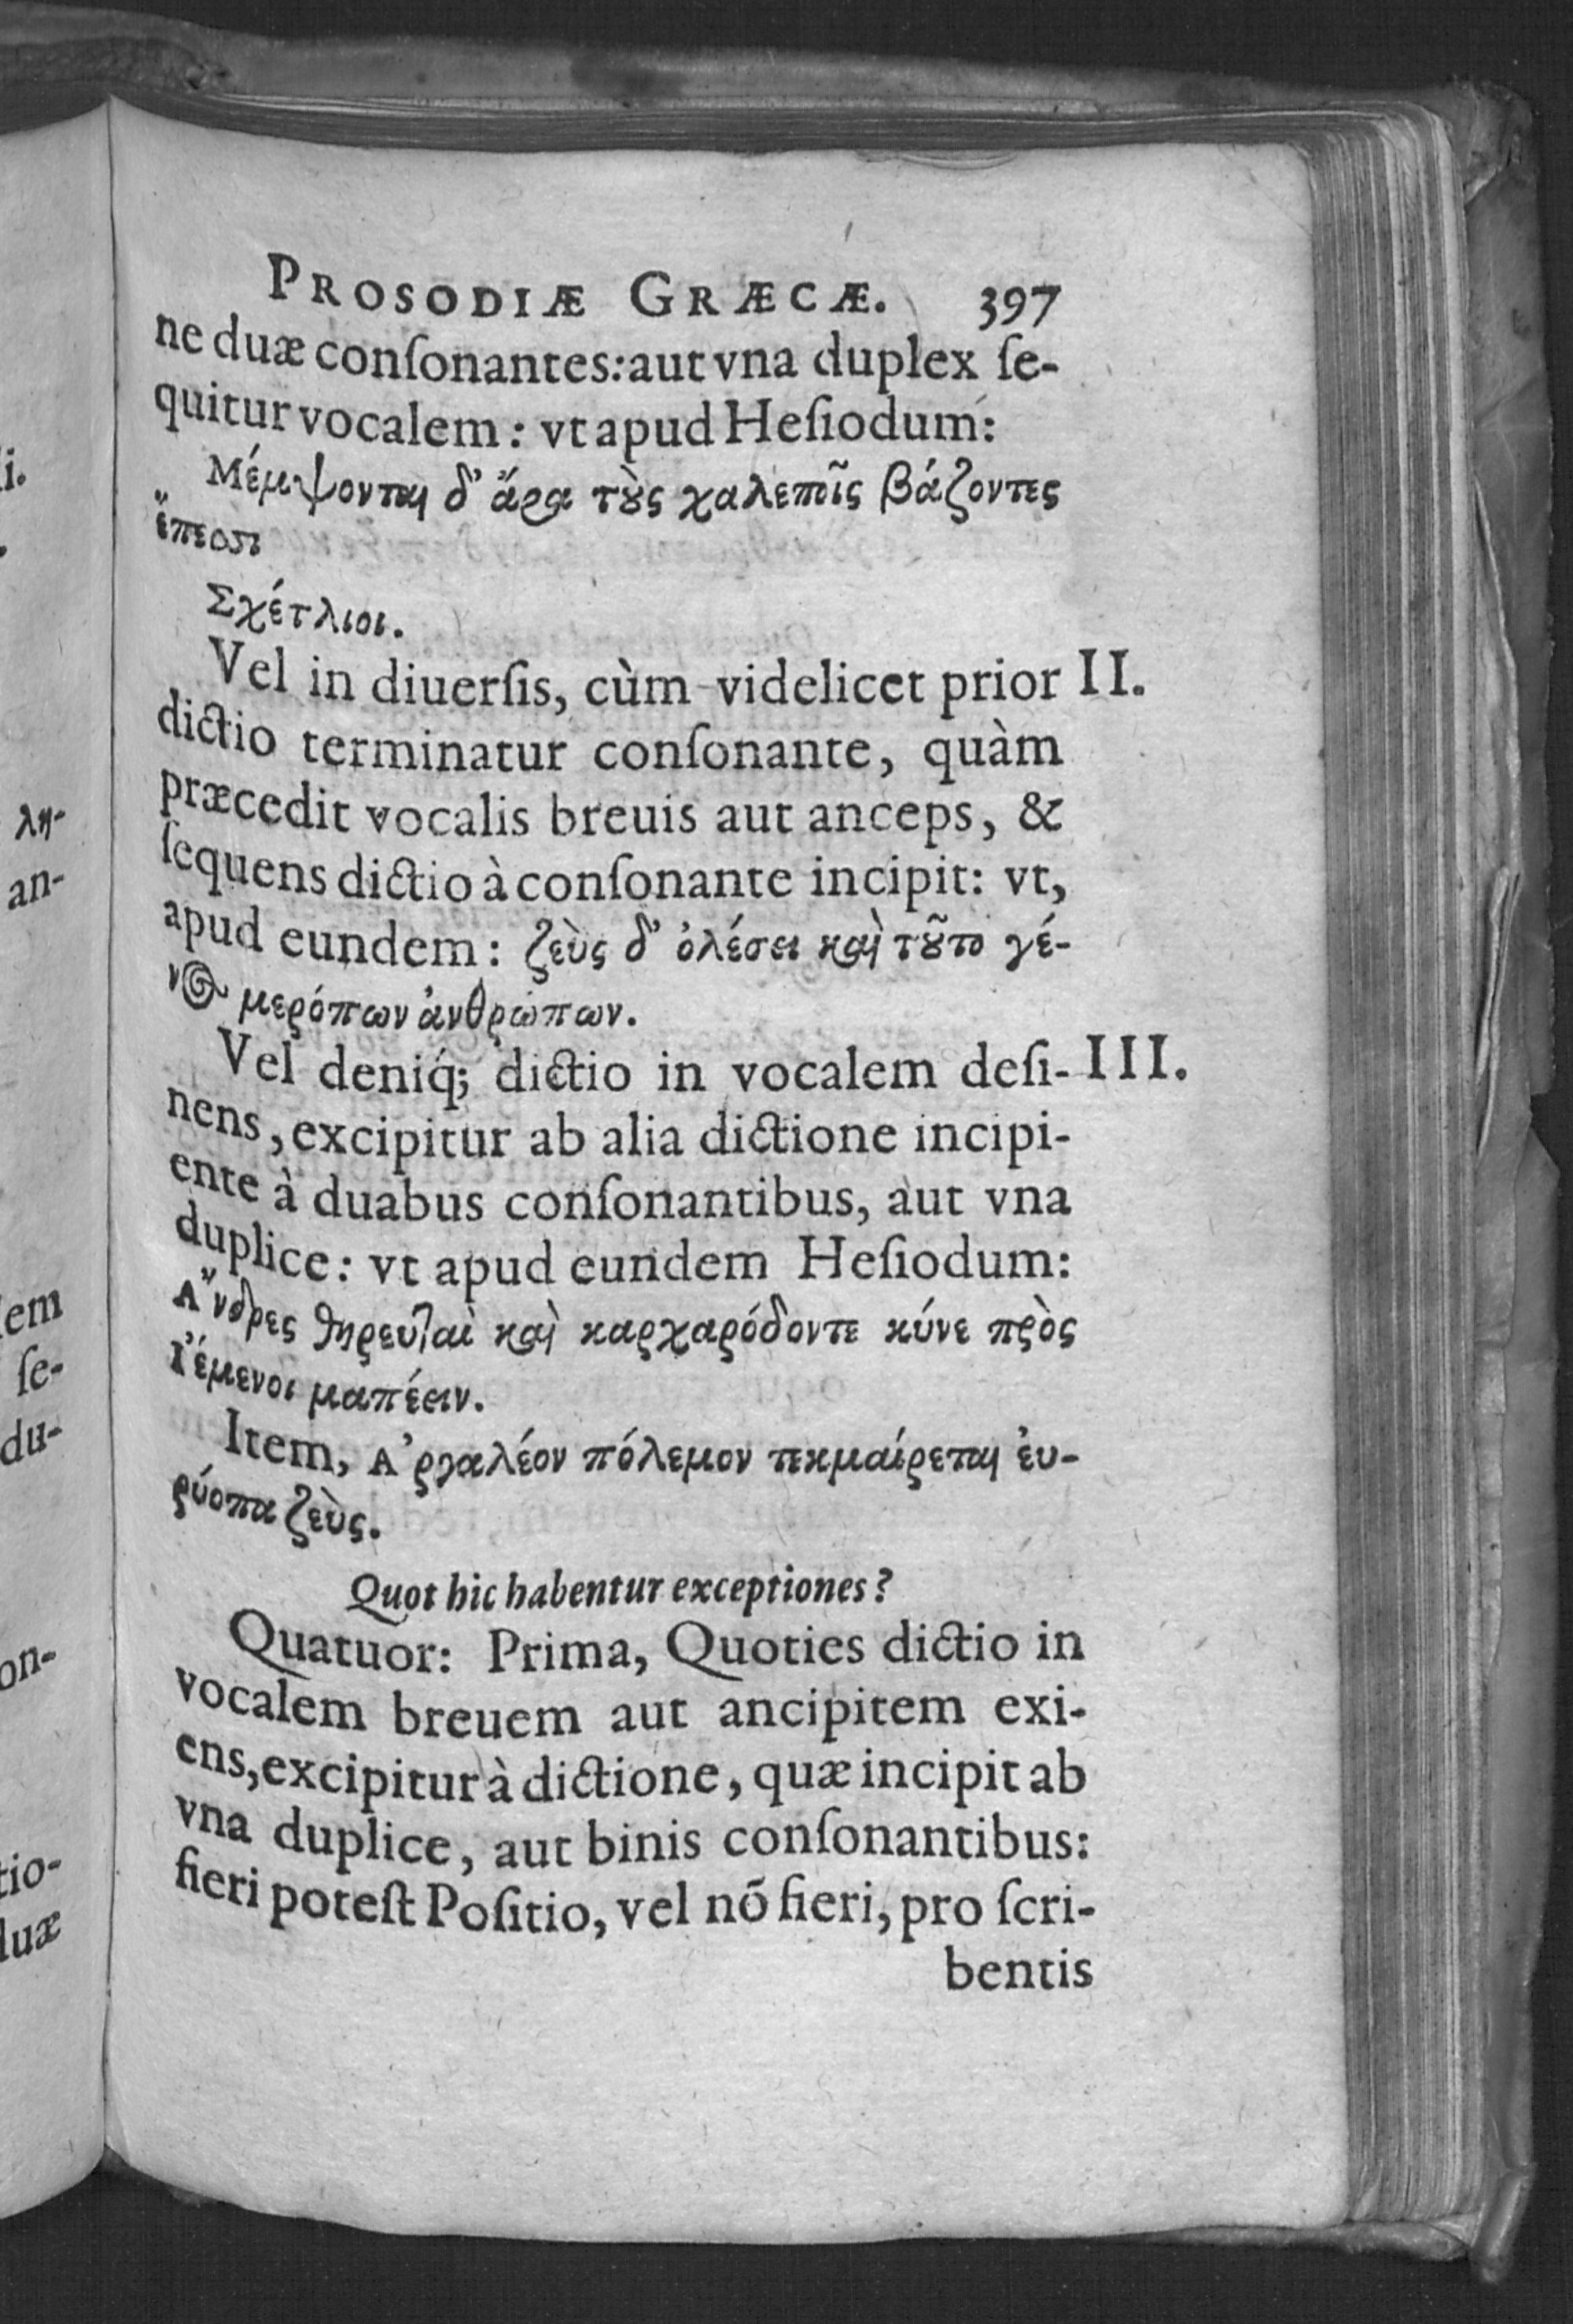 PROSODIÆ GRÆCÆ. 397
ne duæ conſonantes: aut vna duplex ſe-
quitur vocalem: vt apud Heſiodum:
Μέμψονται δ' ἄρα τοὺς χαλεποῖς βάζοντες
ἔπεσσι
Σχέτλιοι.
Vel in diuerſis, cùm videlicet prior II.
dictio terminatur conſonante, quàm
præcedit vocalis breuis aut anceps, &
ſequens dictio à conſonante incipit: vt,
apud eundem: ζεὺς δ' ὀλέσει καὶ τοῦτο γέ-
νος μερόπων ἀνθρώπων.
Vel deniq́; dictio in vocalem deſi- III.
nens, excipitur ab alia dictione incipi-
ente à duabus conſonantibus, aut vna
duplice: vt apud eundem Heſiodum:
Ἄνδρες θηρευταὶ καὶ καρχαρόδοντε κύνε πρὸς
Ἱέμενοι μαπέειν.
Item, Ἀργαλέον πόλεμον τεκμαίρεται ἐυ-
ρύοπα ζεὺς.
Quot hic habentur exceptiones?
Quatuor: Prima, Quoties dictio in
vocalem breuem aut ancipitem exi-
ens, excipitur à dictione, quæ incipit ab
vna duplice, aut binis conſonantibus:
fieri poteſt Poſitio, vel nõ fieri, pro ſcri-
bentis
i.
λη-
an-
ſe-
du-
on-
tio-
duæ